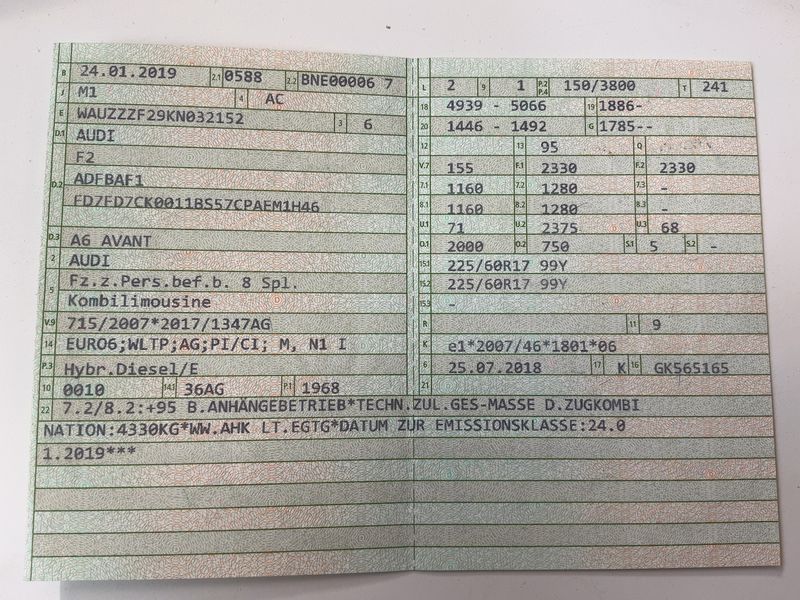 B 24.01.2019 2.1 0588 2.2 BNE00006 7
J M1 4 AC
E WAUZZZF29KN032152 3 6
D.1 AUDI
F2
D.2 ADFBAF1
FD7FD7CK0011BS57CPAEM1H46
D.3 A6 AVANT
2 AUDI
5 Fz.z.Pers.bef.b. 8 Spl.
Kombilimousine
V.9 715/2007*2017/1347AG
14 EURO6;WLTP;AG;PI/CI; M, N1 I
P.3 Hybr.Diesel/E
10 0010 14.1 36AG P.1 1968
L 2 9 1 P.2 P.4 150/3800 T 241
18 4939 - 5066 19 1886-
20 1446 - 1492 G 1785--
12 13 95 Q
V.7 155 F.1 2330 F.2 2330
7.1 1160 7.2 1280 7.3 -
8.1 1160 8.2 1280 8.3 -
U.1 71 U.2 2375 U.3 68
O.1 2000 O.2 750 S.1 5 S.2 -
15.1 225/60R17 99Y
15.2 225/60R17 99Y
15.3 -
R 11 9
K e1*2007/46*1801*06
6 25.07.2018 17 K 16 GK565165
21
22 7.2/8.2:+95 B.ANHÄNGEBETRIEB*TECHN.ZUL.GES-MASSE D.ZUGKOMBI
NATION:4330KG*WW.AHK LT.EGTG*DATUM ZUR EMISSIONSKLASSE:24.0
1.2019***